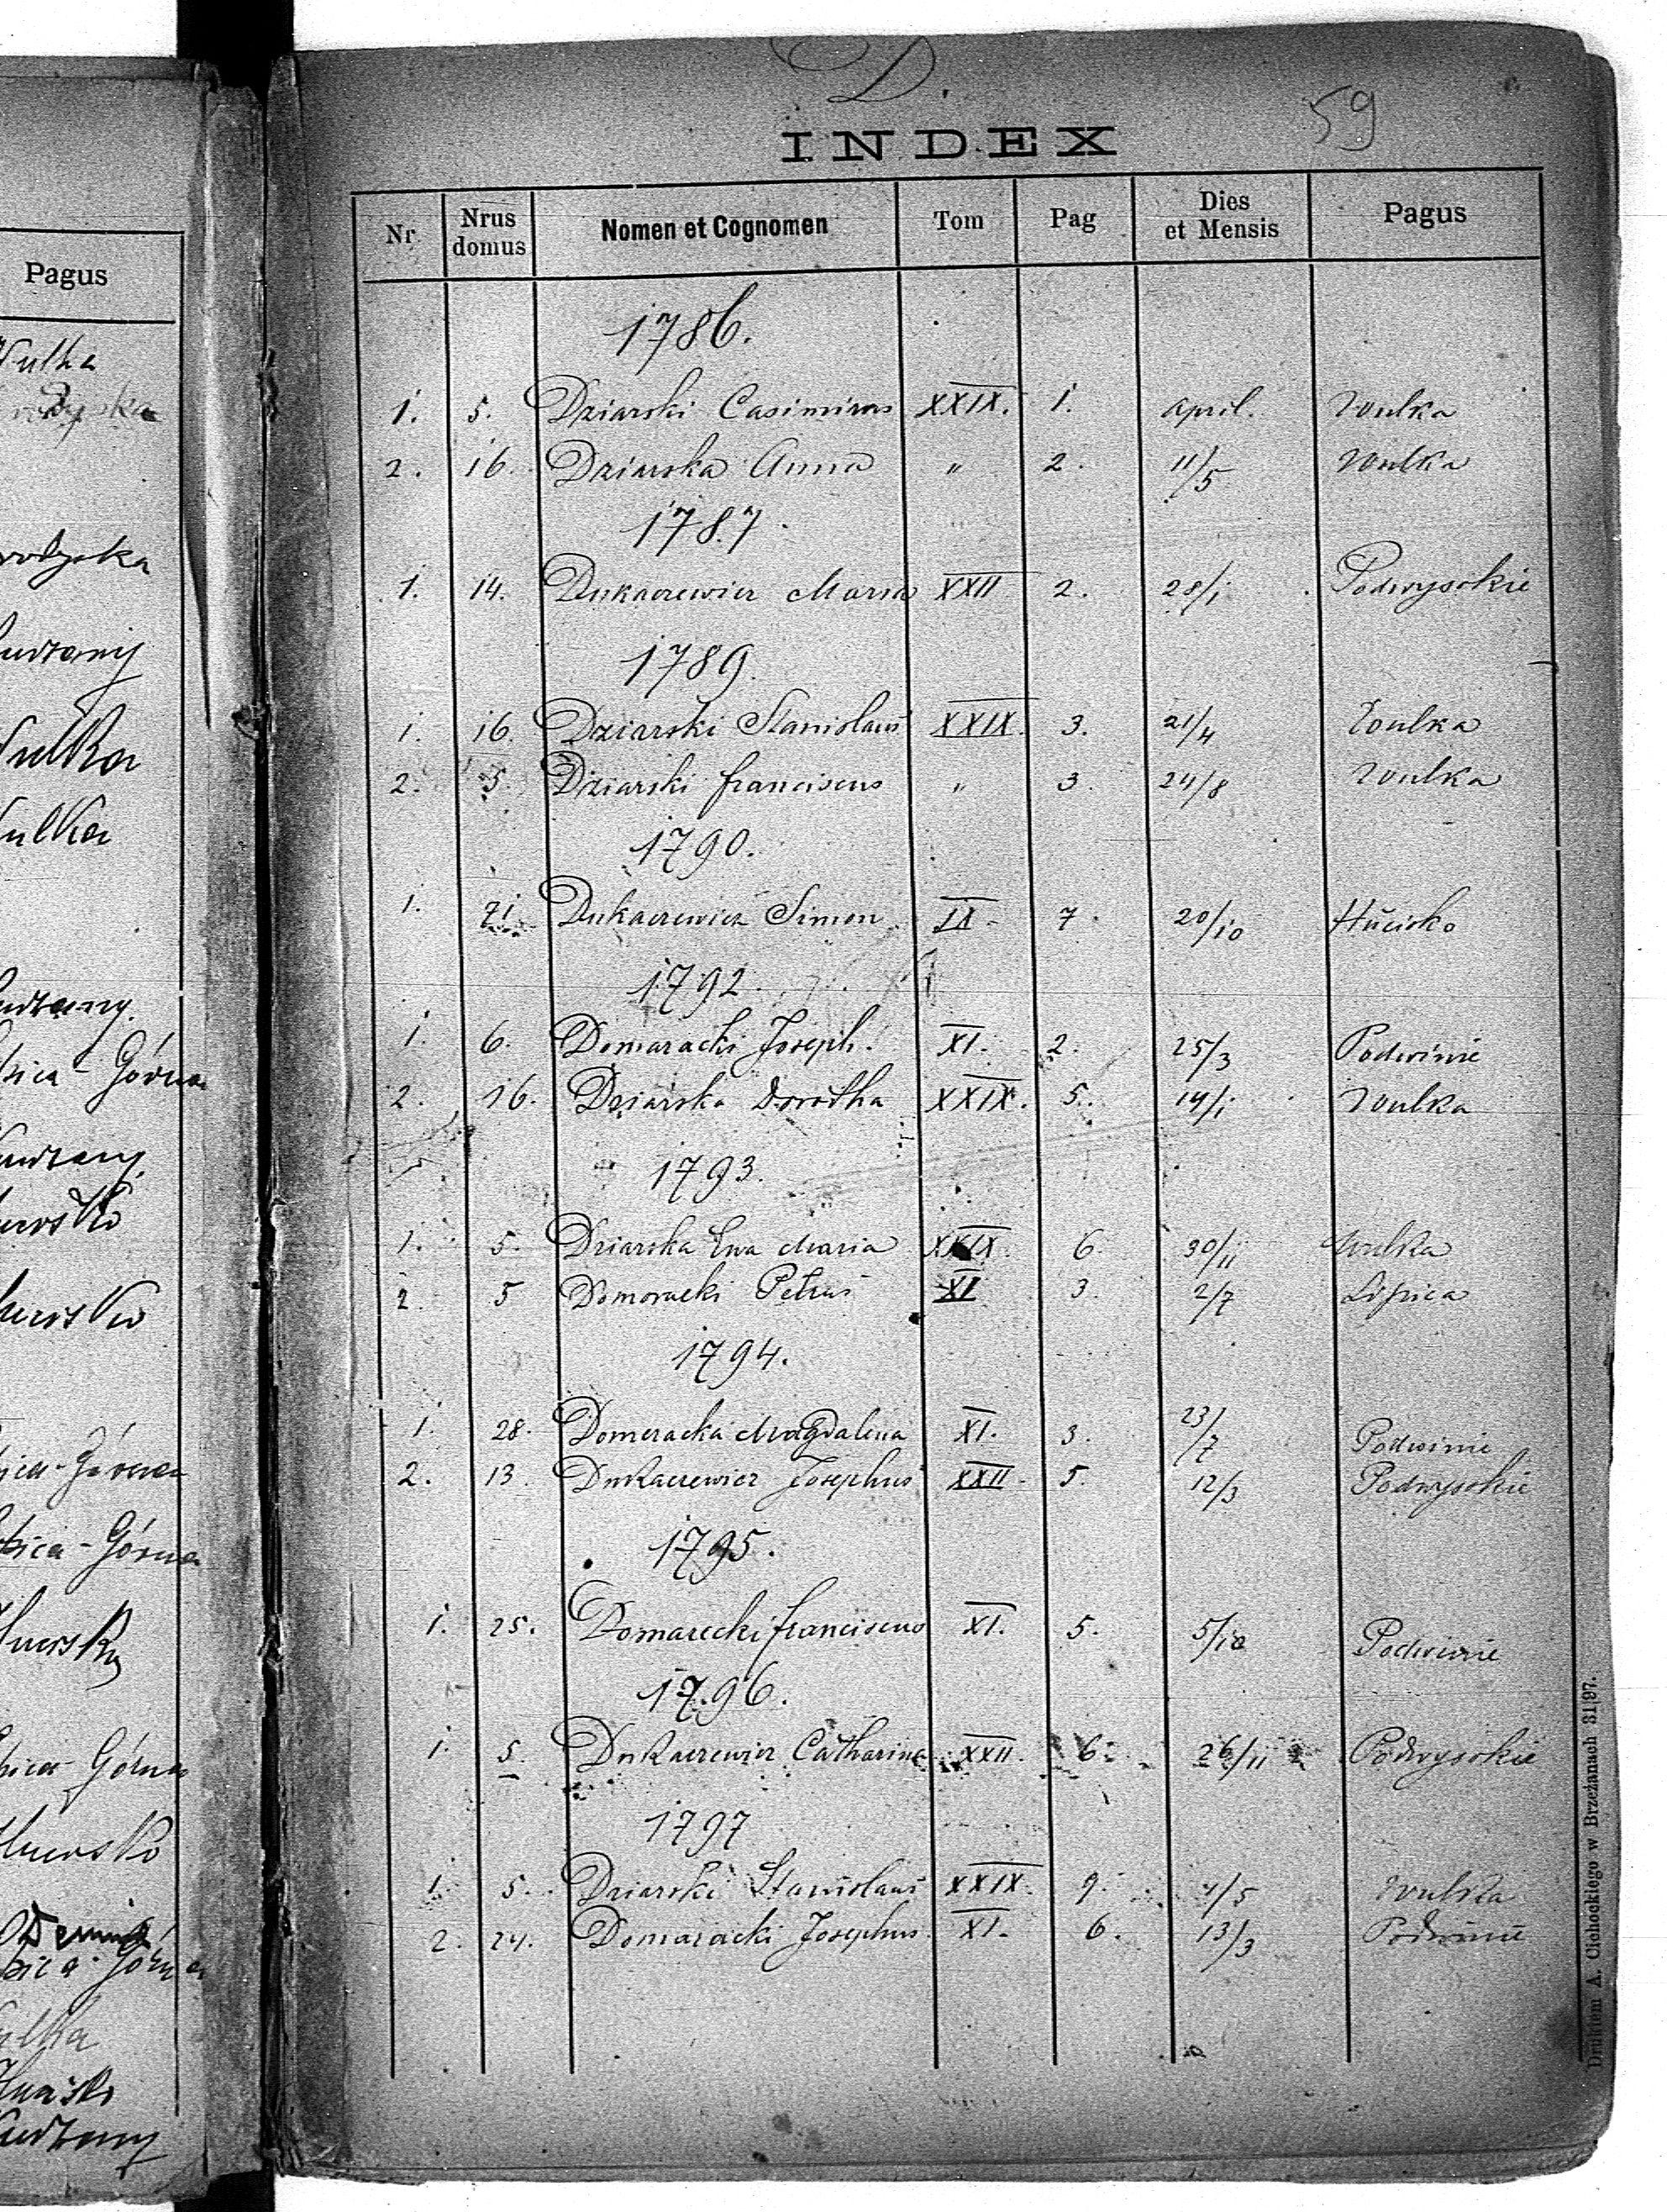 Pagus
Wulka
Wulka
Górna
Górna
Górna
Górna
D.
59
INDEX
Nr Nrus domus Nomen et Cognomen Tom Pag Dies et Mensis Pagus
1786.
1. 5. Dziarski Casimirus XXIX. 1. April. Wulka
2. 16. Dziarska Anna " 2. 11/5 Wulka
1787.
1. 14. Dukaczewicz Maria XXII 2. 28/1 Podwysokie
1789.
1. 16. Dziarski Stanislaus XXIX. 3. 21/4 Wulka
2. 5. Dziarski Franciscus " 3. 24/8 Wulka
1790.
1. 71. Dukaczewicz Simon IX 7. 20/10 Hucisko
1792.
1. 6. Domaracki Joseph. XI. 2. 25/3 Podwinie
2. 16. Dziarska Dorotha XXIX. 5. 14/1 Wulka
1793.
1. 5. Dziarska Ewa Maria XXIX. 6. 30/11 Wulka
2. 5 Domoracki Petrus XI 3. 2/7 Lipica
1794.
1. 28. Domeracka Magdalena XI. 3. 23/7 Podwinie
2. 13. Dukaczewicz Josephus XXII. 5. 12/3 Podwysokie
1795.
1. 25. Domarecki Franciscus XI. 5. 5/10 Podwinie
1796.
1. 5. Dukaczewicz Catharina XXII. 6. 26/11 Podwysokie
1797
1. 5. Dziarski Stanislaus XXIX. 9. 4/5 Wulka
2. 24. Domaracki Josephus XI. 6. 13/3 Podwinie
Drukiem A. Cichockiego w Brzeżanach 31|97.